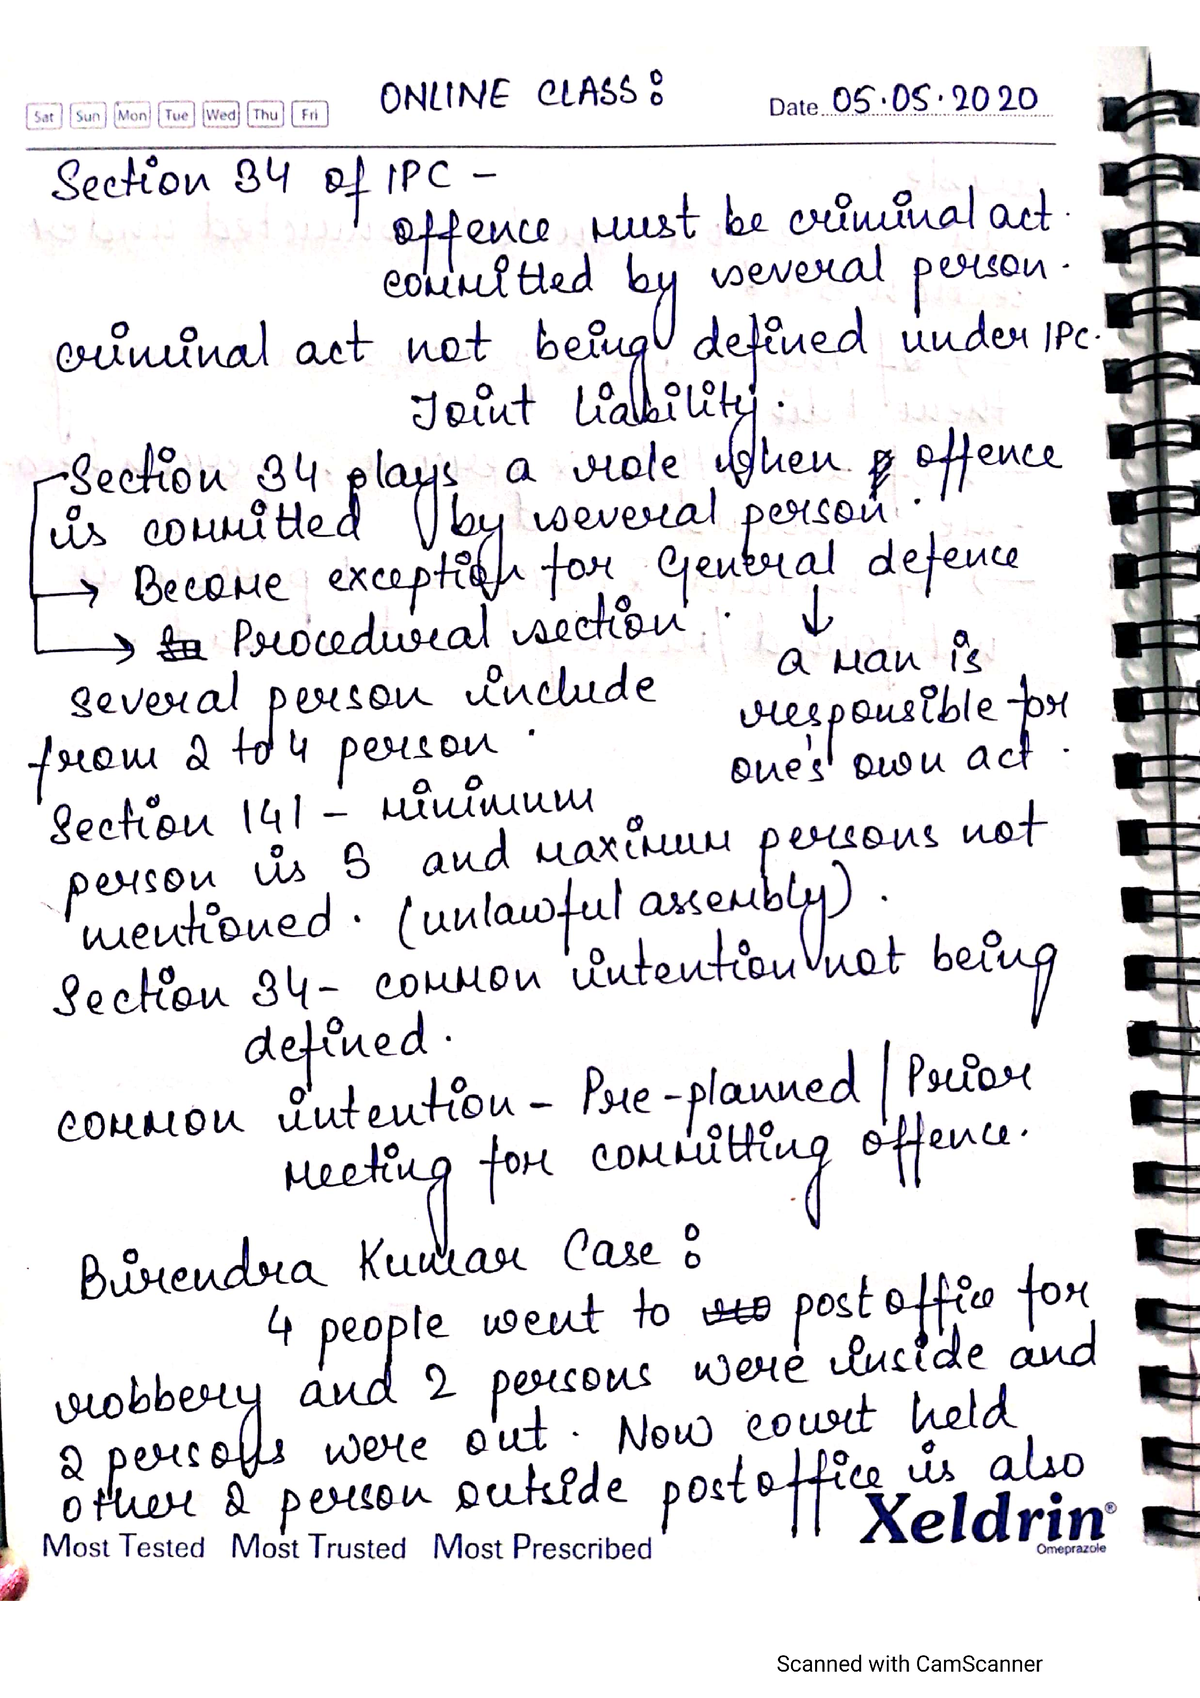 ONLINE CLASS:
Sat Sun Mon Tue Wed Thu Fri
Date 05.05.2020
Section 34 of IPC -
offence must be criminal act.
committed by several person.
criminal act not being defined under IPC.
Joint liability.
Section 34 plays a role when offence
is committed by several person.
→ Become exception for General defence
→ Procedural section.
↓
a man is
responsible for
one's own act.
several person include
from 2 to 4 person.
Section 141 - minimum
person is 5 and maximum persons not
mentioned. (unlawful assembly).
Section 34 - common intention not being
defined.
common intention - Pre-planned / Prior
meeting for committing offence.
Birendra Kumar Case:
4 people went to post office for
robbery and 2 persons were inside and
2 persons were out. Now court held
other 2 person outside post office is also
Most Tested Most Trusted Most Prescribed
Xeldrin®
Omeprazole
Scanned with CamScanner